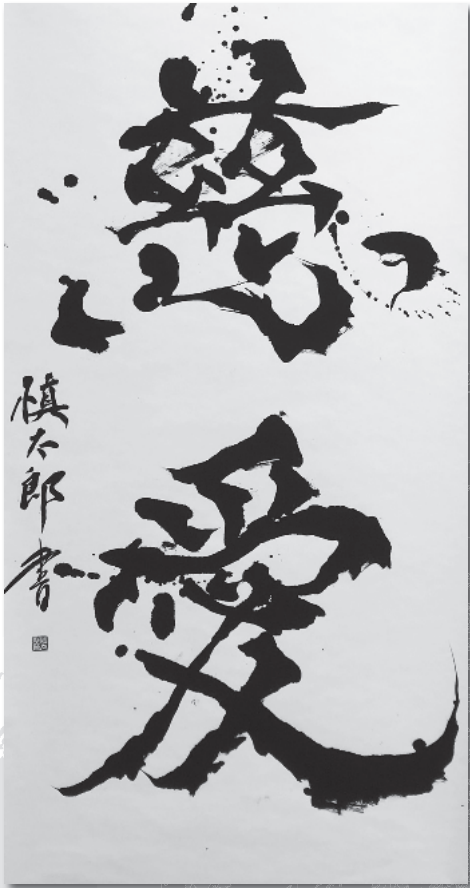 慈愛
慎太郎書